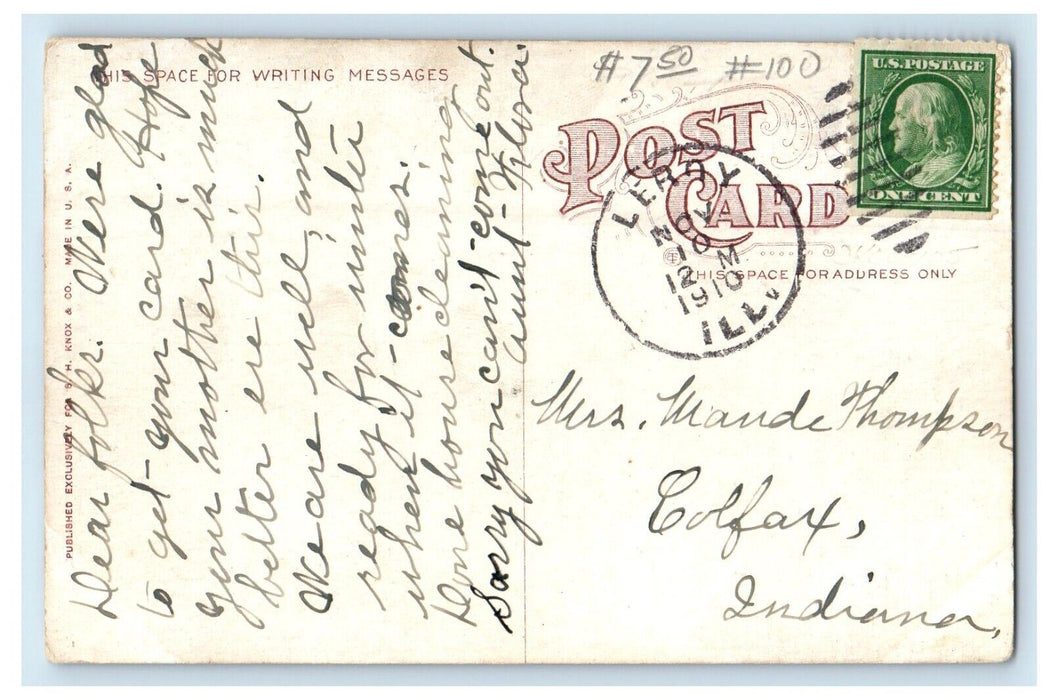 THIS SPACE FOR WRITING MESSAGES
Dear folks. Were glad
to get your card. Hope
your mother is much
better ere this.
We are well, and
ready for winter
when it comes.
done house cleaning
Sorry you can't come out.
Aunt Flora
PUBLISHED EXCLUSIVELY FOR S. H. KNOX & CO. MADE IN U. S. A.
$7.50 #100
POST CARD
U.S. POSTAGE
ONE CENT
LEROY
NOV
10
12 M
1910
ILL.
THIS SPACE FOR ADDRESS ONLY
Mrs. Maude Thompson
Colfax,
Indiana.